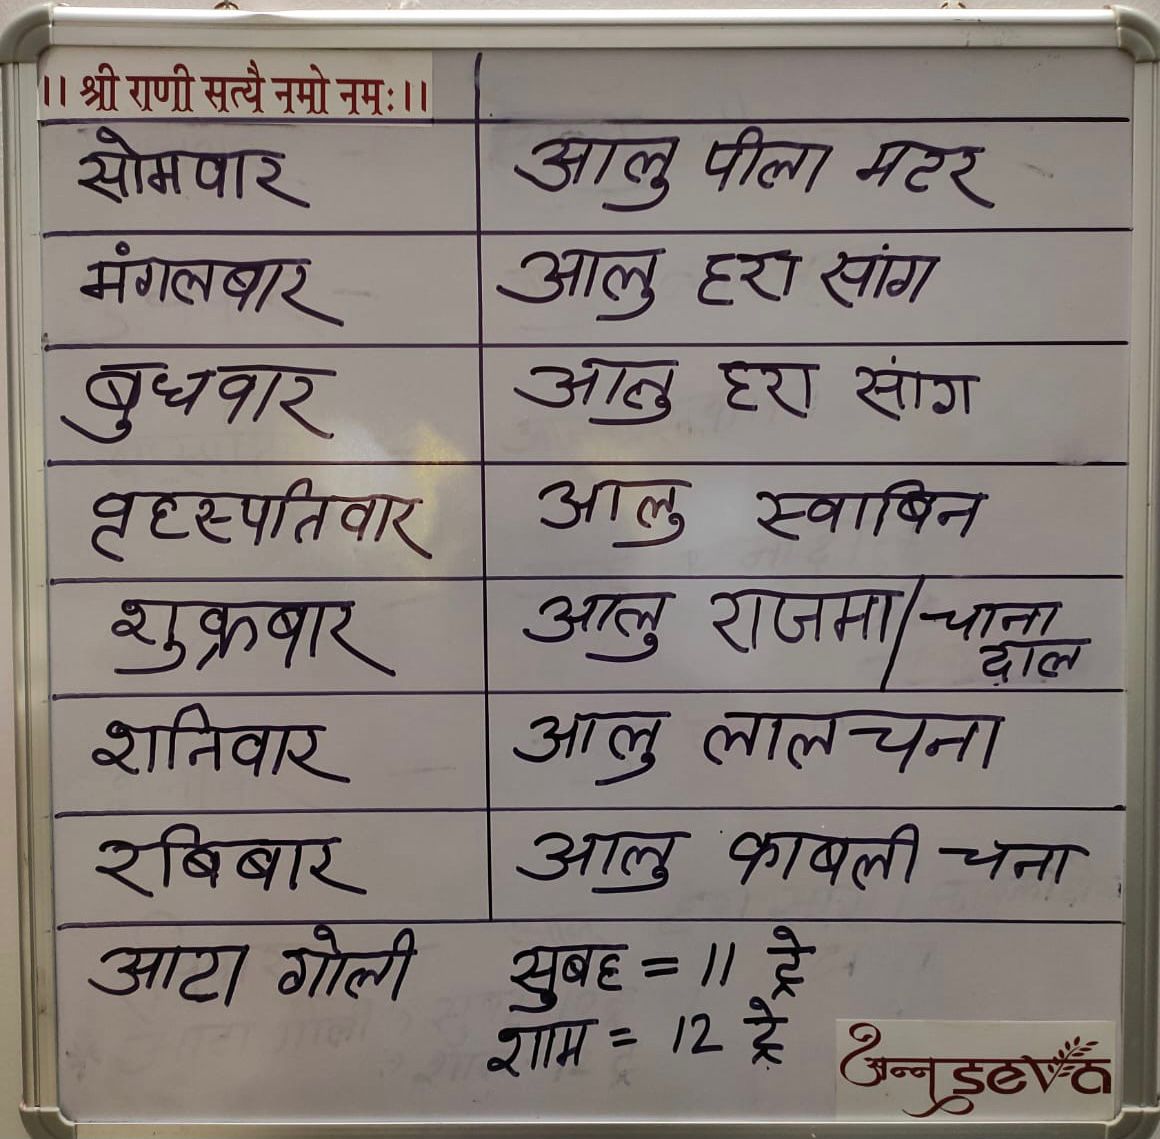 ।। श्री राणी सत्यै नमो नमः ।।
सोमवार आलु पीला मटर
मंगलबार आलु हरा सांग
बुधवार आलु हरा सांग
वृहस्पतिवार आलु स्वाबिन
शुक्रबार आलु राजमा/चाना दाल
शनिवार आलु लाल चना
रबिबार आलु काबली चना
आटा गोली सुबह = 11 ट्रे
शाम = 12 ट्रे
अन्न seva